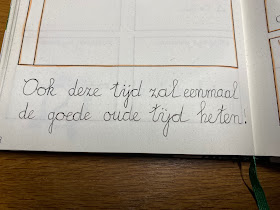 Ook deze tijd zal eenmaal
de goede oude tijd heten!